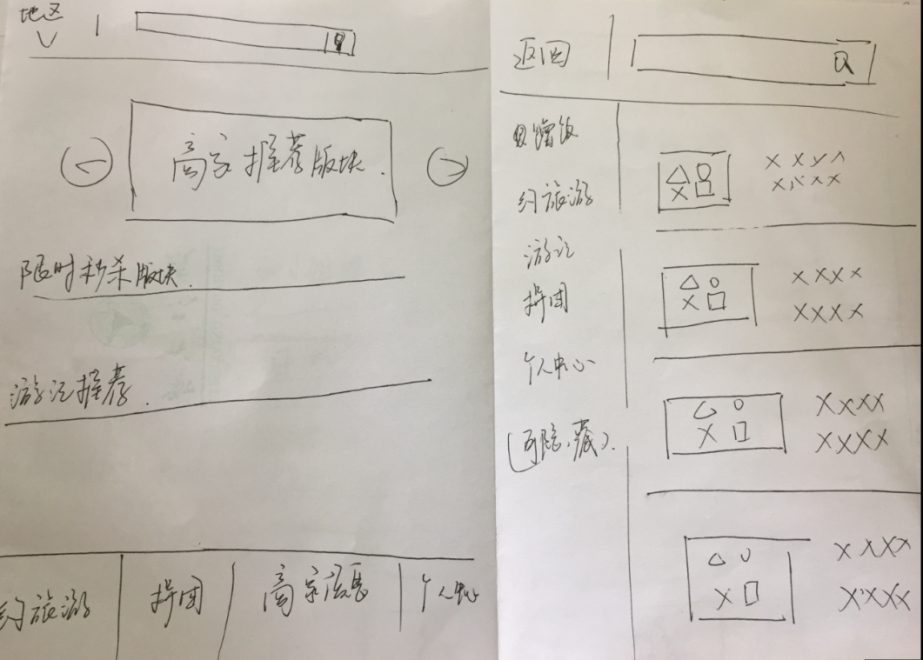 地区
商家推荐版块.
限时秒杀版块.
游记推荐.
约旅游
拼团
个人中心
返回
约旅游
游记
拼团
个人中心
(可隐藏).
X X X X
X X X X
X X X X
X X X X
X X X X
X X X X
X X X X
X X X X